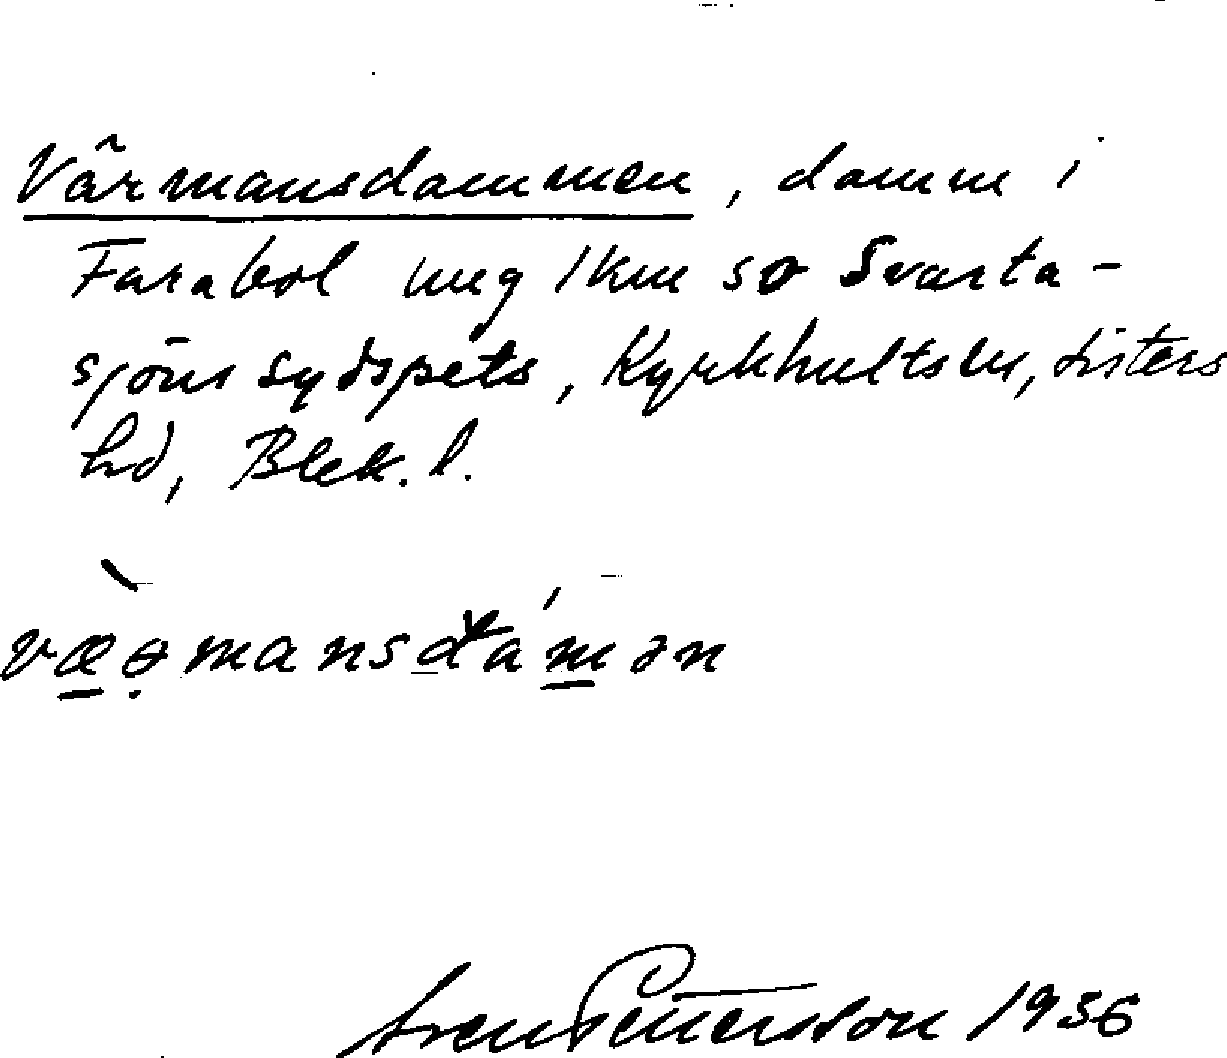 Värmansdammen, damm i
Farabol ung 1 km so Svarta-
sjöns sydspets, Kyrkhults sn, Listers
hd, Blek. l.
væəmansdamən
Sven Pettersson 1936